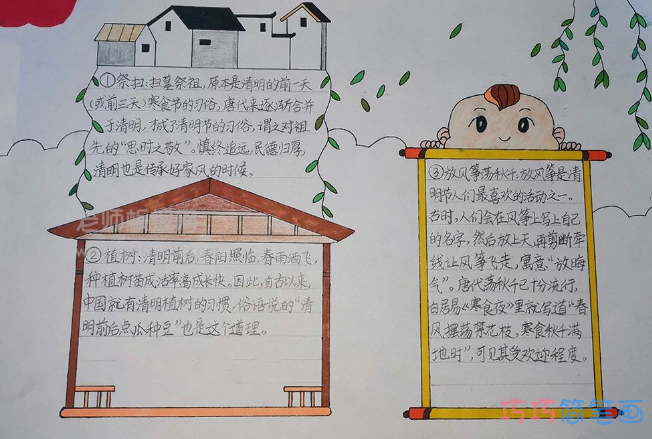 ①祭扫:扫墓祭祖,原本是清明的前一天
(或前三天)寒食节的习俗,唐代末逐渐合并
于清明,才成了清明节的习俗,谓之对祖
先的“思时之敬”。慎终追远,民德归厚,
清明也是传承好家风的时候。
②植树:清明前后,春阳照临,春雨洒飞,
种植树苗成活率高成长快。因此,自古以来,
中国就有清明植树的习惯,俗语说的“清
明前后点瓜种豆”也是这个道理。
③放风筝荡秋千。放风筝是清
明节人们最喜欢的活动之一。
古时,人们会在风筝上写上自己
的名字,然后放上天,再剪断牵
线让风筝飞走,寓意“放晦
气”。唐代荡秋千已十分流行,
白居易《寒食夜》里就写道“春
风摆荡菜花枝,寒食秋千满
地时”,可见其受欢迎程度。
巧巧简笔画